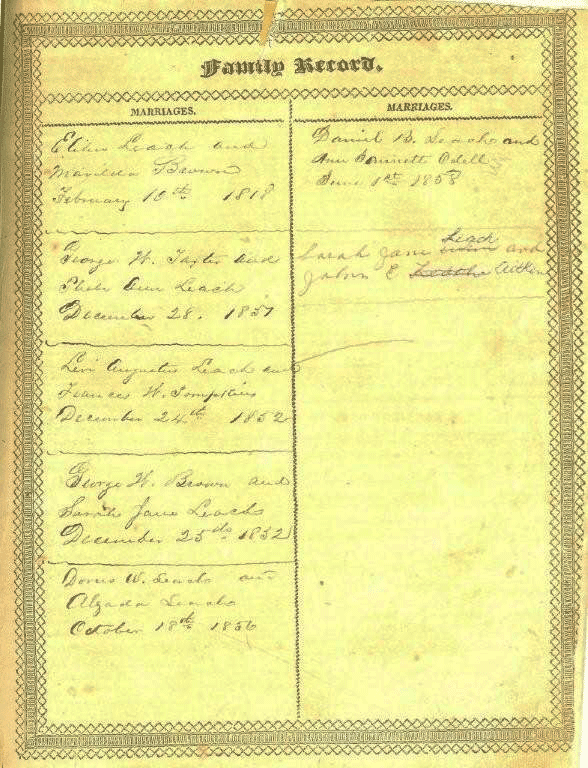 Family Record.
MARRIAGES.
Elihu Leach and
Marilda Brown
February 10th 1818
George W. Taxter and
Phebe Ann Leach
December 28. 1837
Levi Augustus Leach and
Frances W. Tompkins
December 24th 1852
George W. Brown and
Sarah Jane Leach
December 25th 1852
Dorus W. Leach and
Alzada Leach
October 18th 1856
MARRIAGES.
Daniel B. Leach and
Ann Odell
June 1st 1858
Leach
Sarah Jane and
John E Aitken